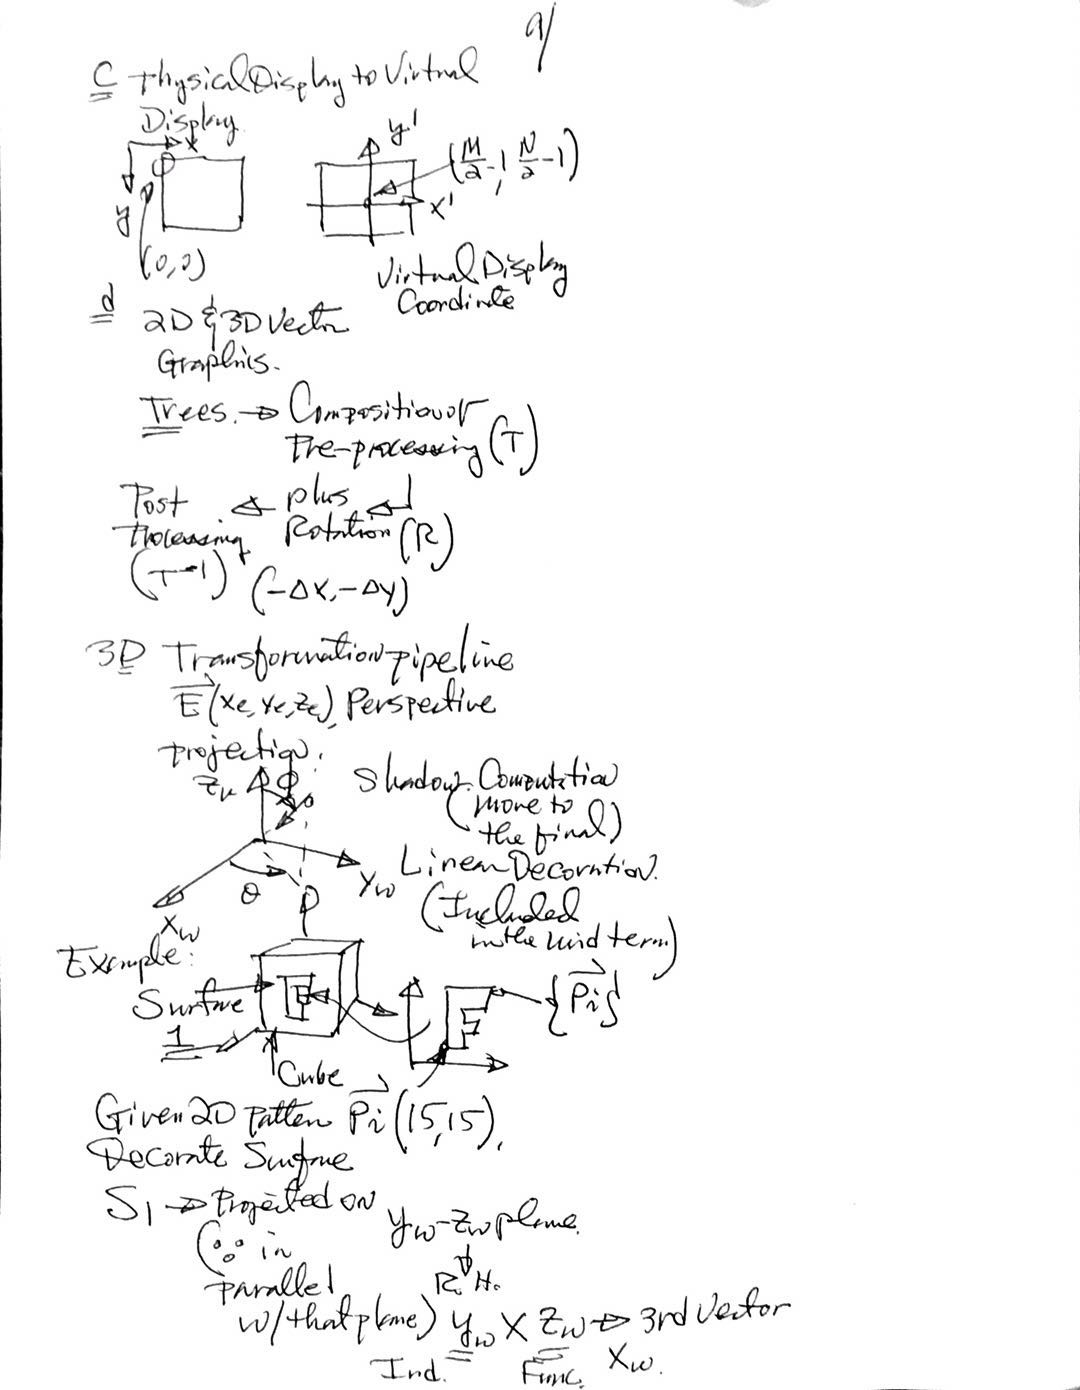 9/
C Physical Display to Virtual
Display
x
y
(0,0)
y'
(M/2-1, N/2-1)
x'
Virtual Display
Coordinate
d
2D & 3D Vector
Graphics.
Trees. → Composition of
Pre-processing (T)
Post ← plus ←
Processing Rotation (R)
(T^-1) (-Δx, -Δy)
3D Transformation pipeline
E(xe, ye, ze), Perspective
projection.
Shadow Computation
(move to
the final)
φ
ρ
θ
Yw
Xw
Linear Decoration.
(Included
in the mid term)
P
Example:
Surface
1
F
F
{Pi}
Cube
Given 2D Pattern Pi(15,15),
Decorate Surface
S1 → Projected on
yw-zw plane.
(∵ in
parallel
w/ that plane)
R.H.
yw × zw → 3rd Vector
Ind. Func. Xw.